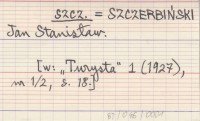 szcz. = SZCZERBIŃSKI
Jan Stanisław.
[w: „Turysta" 1 (1927),
nr 1/2, s. 18.]